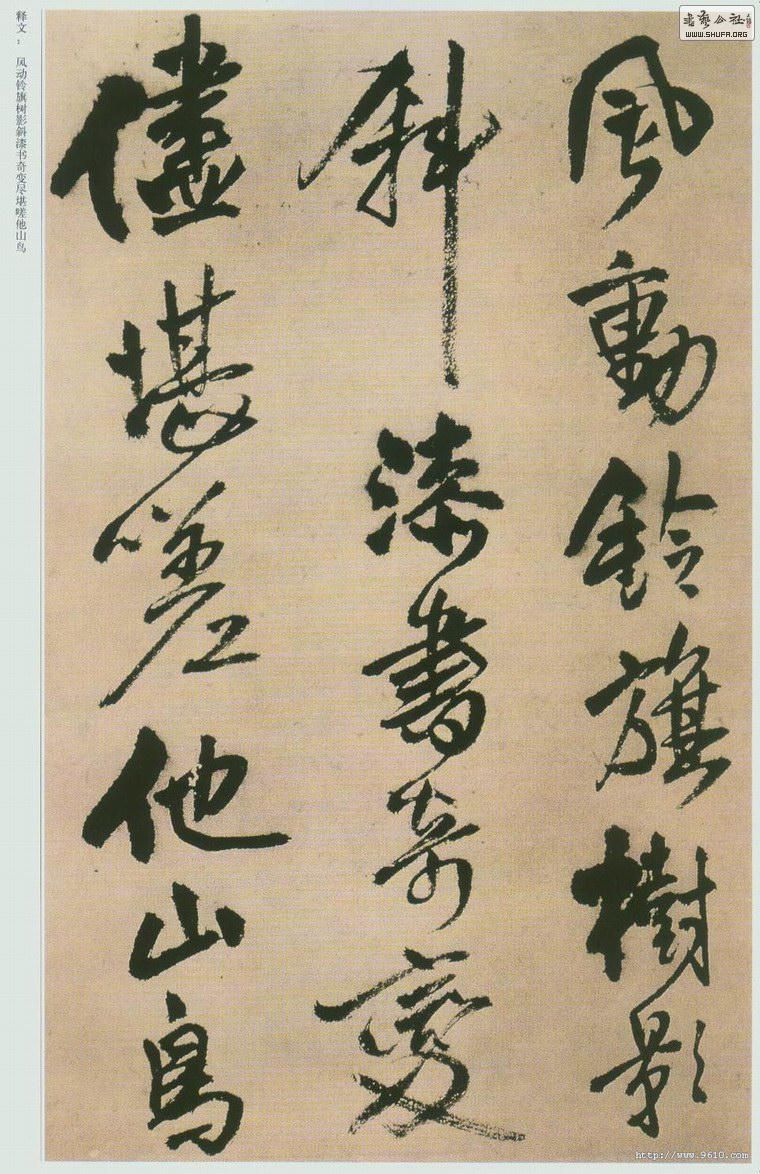 風動鈴旗樹影
斜漆書奇變
儘堪嗟他山鳥
释文：风动铃旗树影斜漆书奇变尽堪嗟他山鸟
WWW.SHUFA.ORG
http://www.9610.com